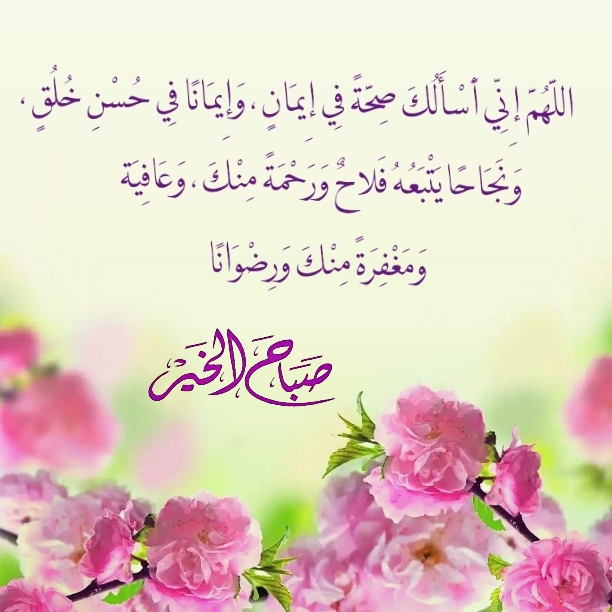 اللّهُمّ إِنِّي أَسْأَلُكَ صِحّةً فِي إِيمَانٍ ، وَإِيمَانًا فِي حُسْنِ خُلُقٍ ،
وَنَجَاحًا يَتْبَعُهُ فَلاحٌ وَرَحْمَةً مِنْكَ ، وَعَافِيَة
وَمَغْفِرَةً مِنْكَ وَرِضْوَانًا
صَبَاحَ الخَيْر